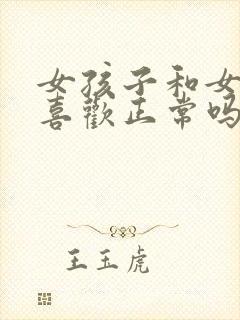 女孩子和女
喜歡正常吗
王玉虎